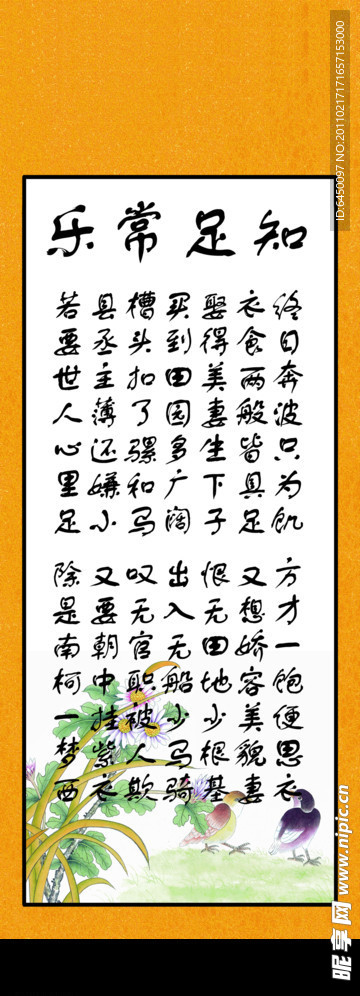 知足常乐
终日奔波只为饥 方才一饱便思衣
衣食两般皆具足 又想娇容美貌妻
娶得美妻生下子 恨无田地少根基
买到田园多广阔 出入无船少马骑
槽头扣了骡和马 叹无官职被人欺
县丞主薄还嫌小 又要朝中挂紫衣
若要世人心里足 除是南柯一梦西
ID:6450097 NO:20110217171657153000
昵享网 www.nipic.cn